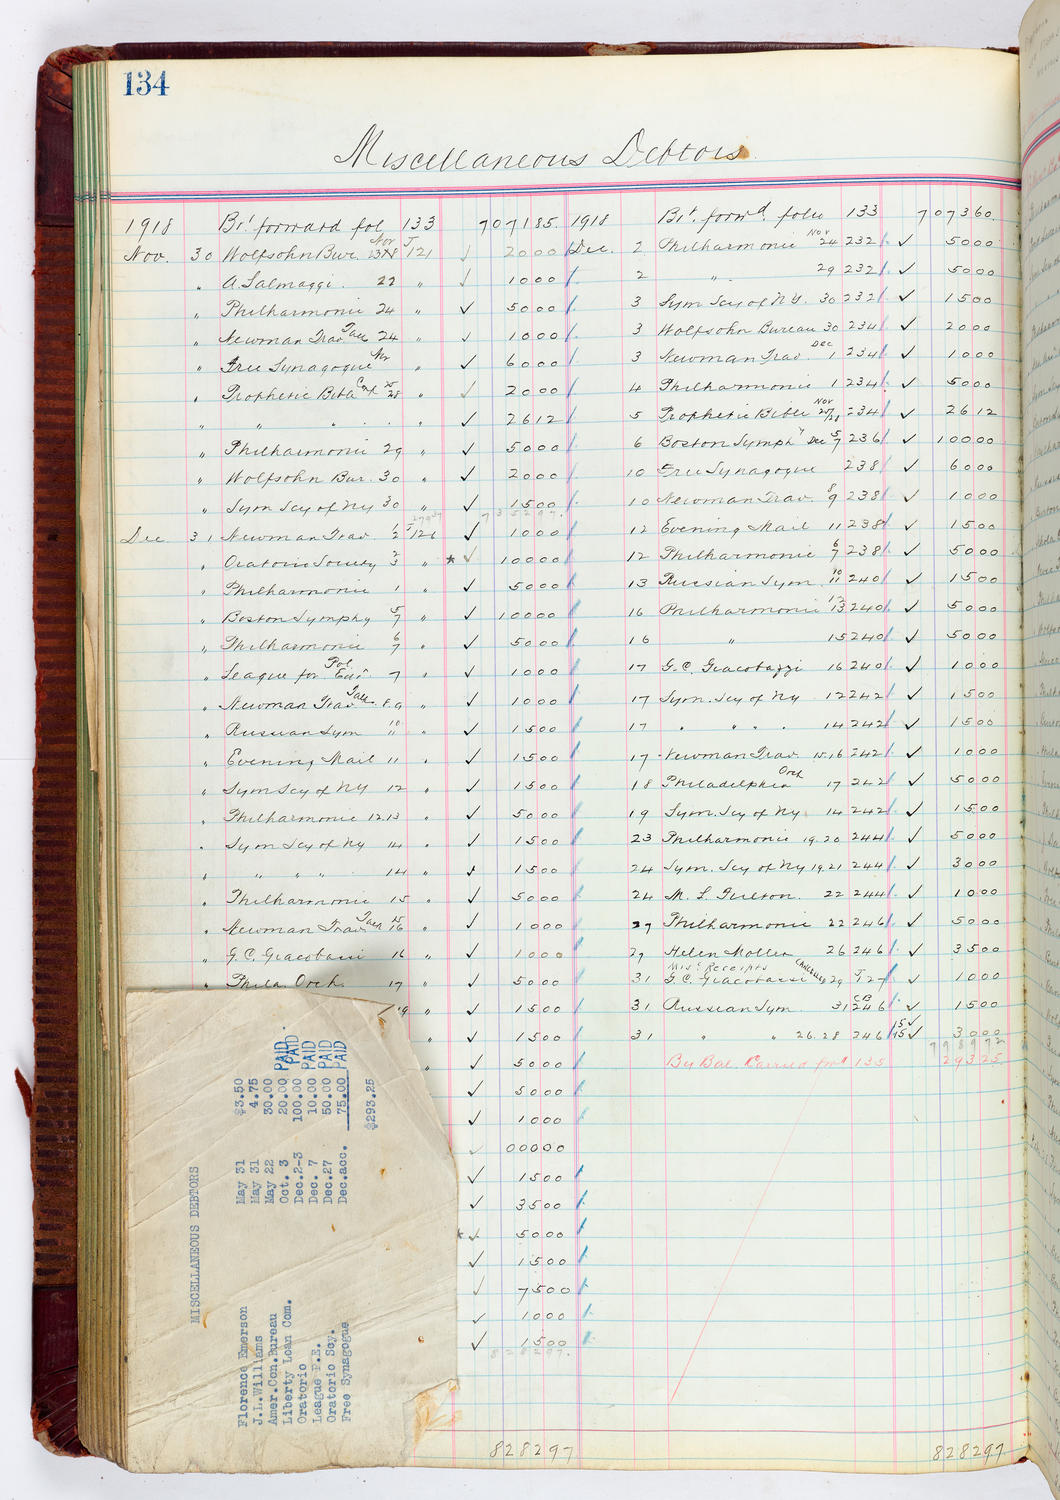 134
Miscellaneous Debtors
1918 Bt. forward fol 133 707185
Nov. 30 Wolfsohn Bur. Nov 121 ✓ 2000
" A. Salmaggi. 22 " ✓ 1000
" Philharmonic 24 " ✓ 5000
" Newman Trav Talk 24 " ✓ 1000
" Free Synagogue Nov " ✓ 6000
" Prophetic Bible Con 25 28 " ✓ 2000
" " " " ✓ 2612
" Philharmonic 29 " ✓ 5000
" Wolfsohn Bur. 30 " ✓ 2000
" Sym Scy of NY 30 " ✓ 1500
735297.
Dec 31 Newman Trav 1 2 J 126 ✓ 1000
" Oratorio Society 2 3 " * ✓ 10000
" Philharmonic 1 " ✓ 5000
" Boston Symphy 5 7 " ✓ 10000
" Philharmonic 6 7 " ✓ 5000
" League for Pol. Edn 7 " ✓ 1000
" Newman Trav Talk 8.9 " ✓ 1000
" Russian Sym 10 11 " ✓ 1500
" Evening Mail 11 " ✓ 1500
" Sym Scy of NY 12 " ✓ 1500
" Philharmonic 12.13 " ✓ 5000
" Sym Scy of Ny 14 " ✓ 1500
" " " " 14 " ✓ 1500
" Philharmonic 15 " ✓ 5000
" Newman Trav Talk 15 16 " ✓ 1000
" G.C. Giacobassi 16 " ✓ 1000
" Phila. Orch. 17 " ✓ 5000
19 " ✓ 1500
" ✓ 1500
" ✓ 5000
✓ 5000
✓ 1000
✓ 00000
✓ 1500
✓ 3500
* ✓ 5000
✓ 1500
✓ 7500
✓ 1000
✓ 1500
828297.
828297
1918 Bt. forwd. folio 133 707360
Dec. 2 Philharmonic Nov 24 232 ✓ 5000
2 " 29 232 ✓ 5000
3 Sym Scy of NY. 30 232 ✓ 1500
3 Wolfsohn Bureau 30 234 ✓ 2000
3 Newman Trav. Dec 1 234 ✓ 1000
4 Philharmonic 1 234 ✓ 5000
5 Prophetic Bible Nov 25/28 234 ✓ 2612
6 Boston Symphy Dec 5 7 236 ✓ 10000
10 Free Synagogue 238 ✓ 6000
10 Newman Trav. 8 9 238 ✓ 1000
12 Evening Mail 11 238 ✓ 1500
12 Philharmonic 6 7 238 ✓ 5000
13 Russian Sym. 10 11 240 ✓ 1500
16 Philharmonic 12 13 240 ✓ 5000
16 " 15 240 ✓ 5000
17 G.C. Giacobazzi 16 240 ✓ 1000
17 Sym. Scy of Ny 12 242 ✓ 1500
17 " " " 14 242 ✓ 1500
17 Newman Trav. 15.16 242 ✓ 1000
18 Philadelphia Orch 17 242 ✓ 5000
19 Sym. Scy of Ny 14 242 ✓ 1500
23 Philharmonic 19.20 244 ✓ 5000
24 Sym. Scy of Ny 19.21 244 ✓ 3000
24 M. L. Fulton. 22 244 ✓ 1000
27 Philharmonic 22 246 ✓ 5000
27 Helen Moller 26 246 ✓ 3500
Misc Receipts Cancelled
31 G.C. Giacobassi 29 J 127 ✓ 1000
31 Russian Sym. 31 CB 246 ✓ 1500
31 " " 26.28 246 15 15 ✓ 3000
798972
By Bal. Carried fwd 135 29325
828297
MISCELLANEOUS DEBTORS
Florence Emerson May 31 $3.50
J.L.Williams May 31 4.75
Amer.Con.Bureau May 22 30.00
Liberty Loan Com. Oct. 3 20.00 PAID
Oratorio Dec.2-3 100.00 PAID
League P.E. Dec. 7 10.00 PAID
Oratorio Scy. Dec.27 50.00 PAID
Free Synagogue Dec.acc. 75.00 PAID
$293.25